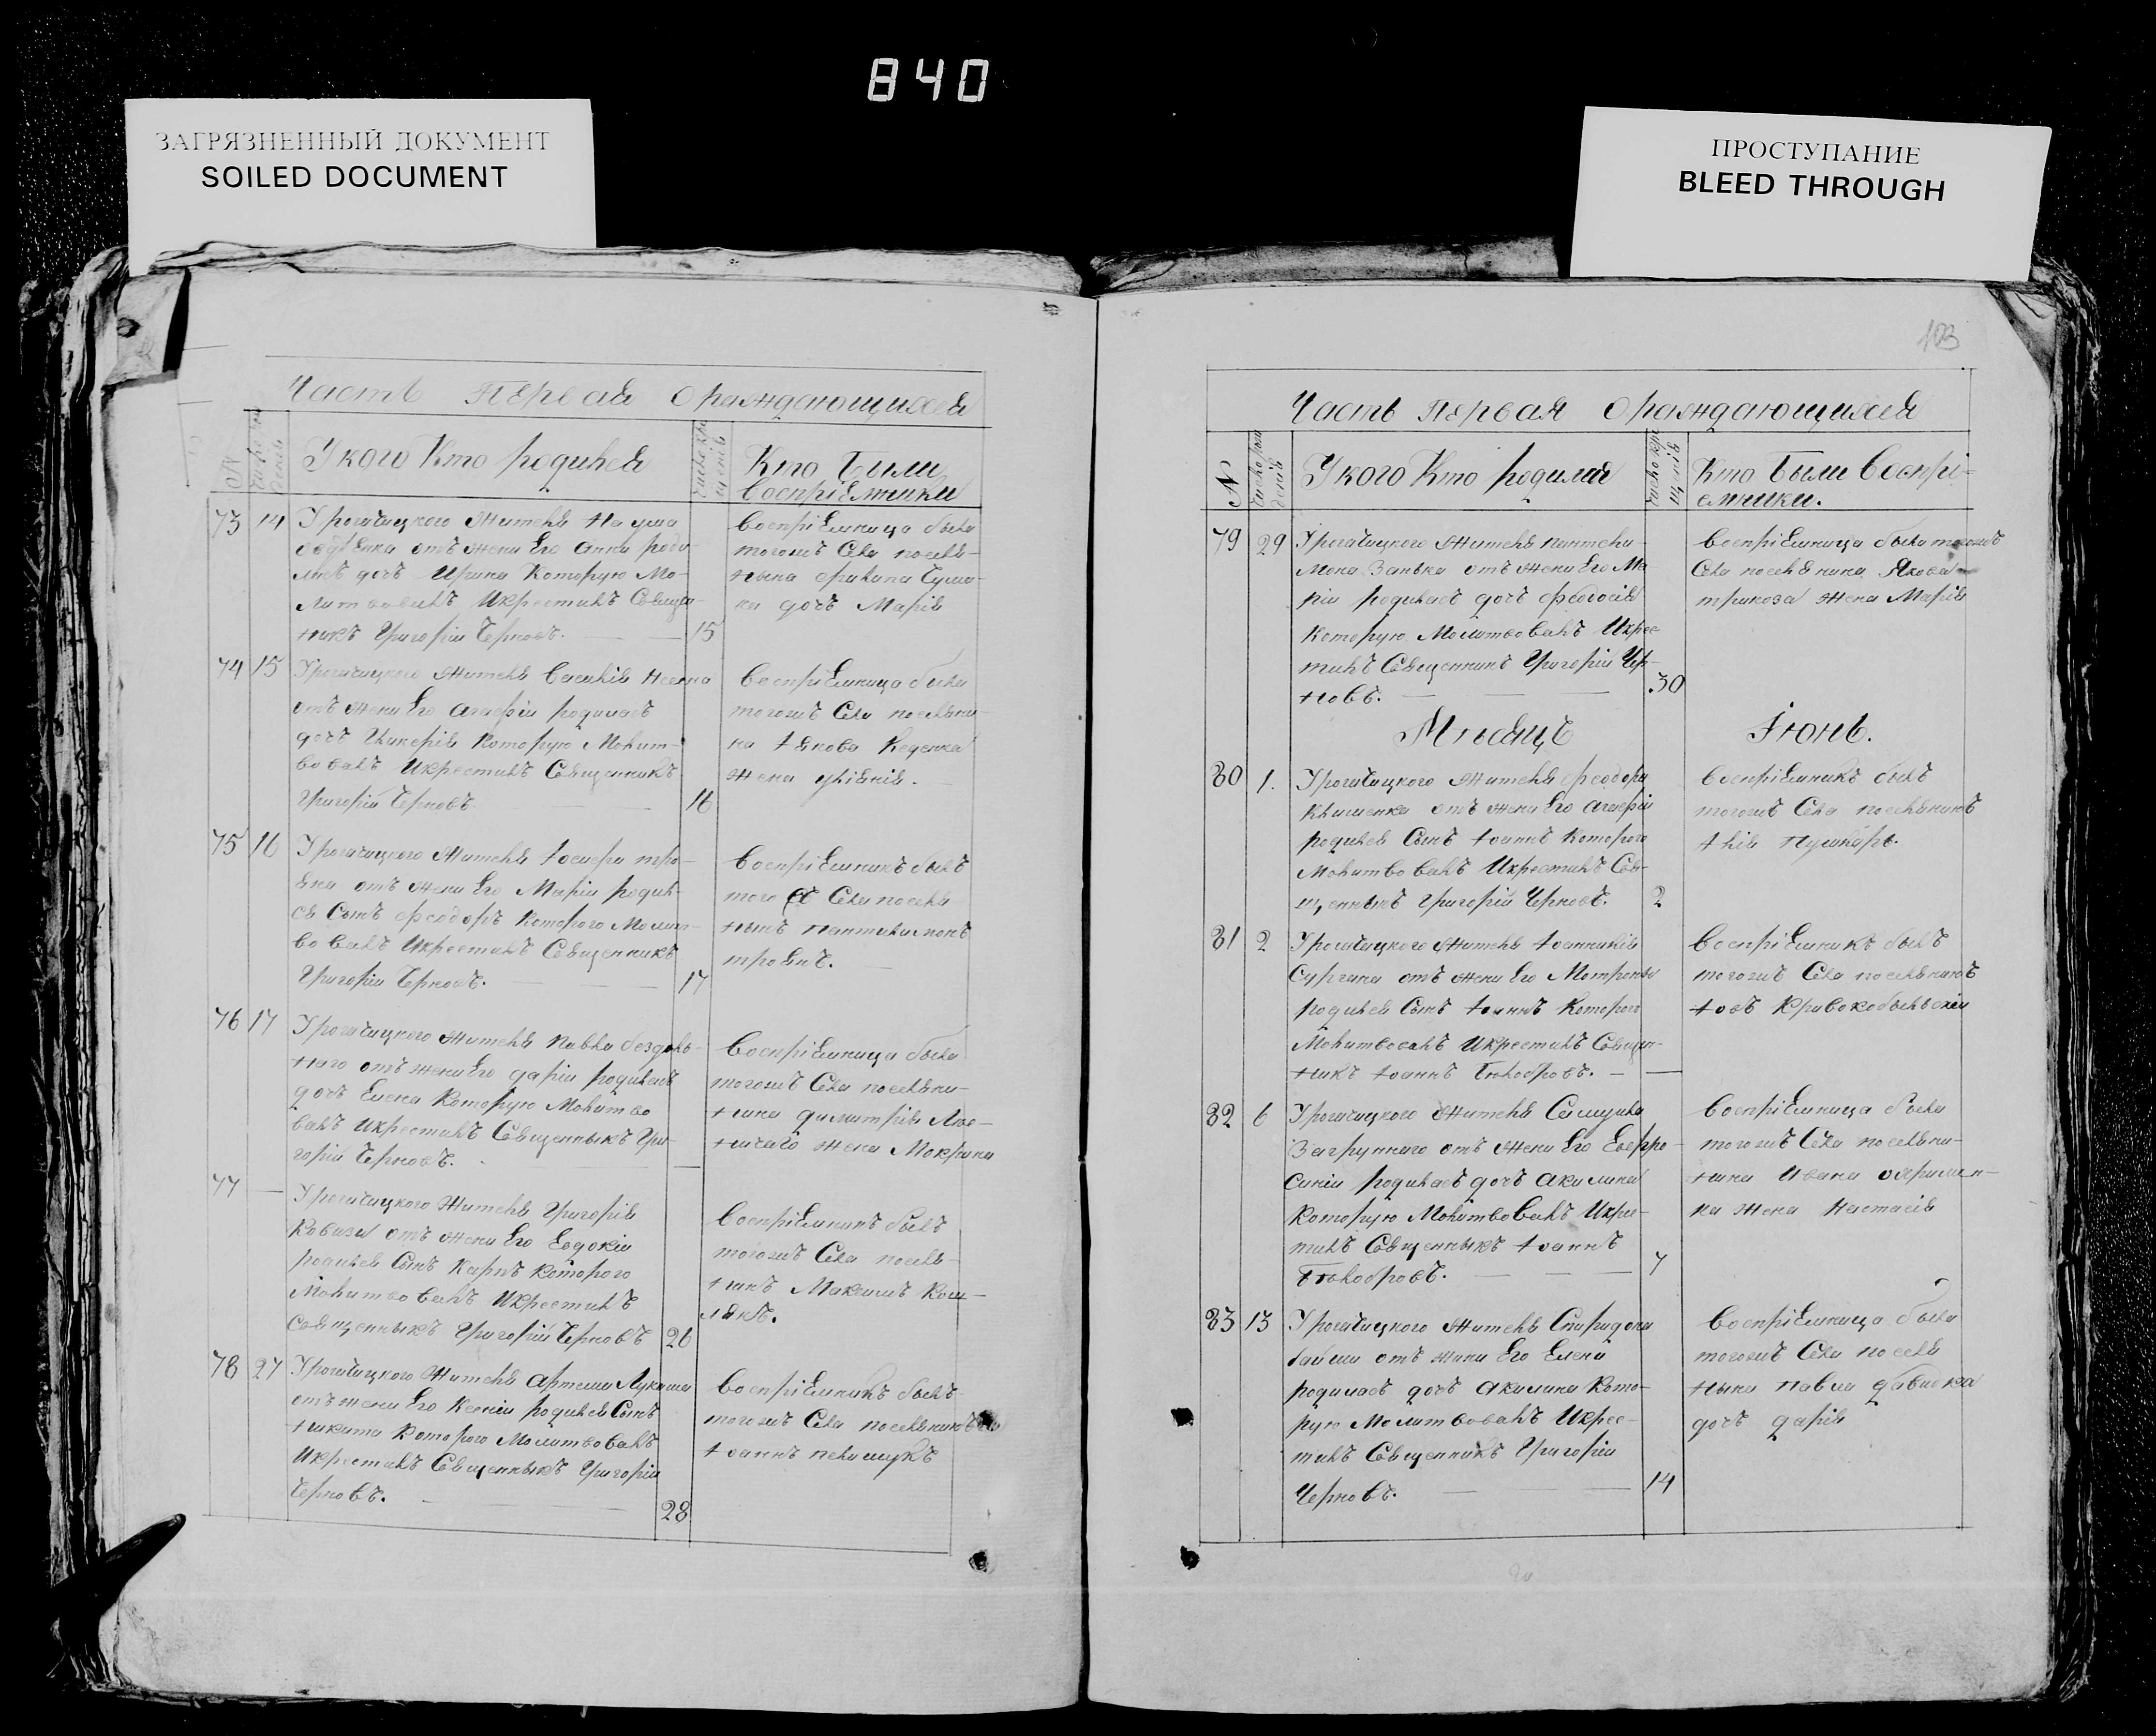 840
ЗАГРЯЗНЕННЫЙ ДОКУМЕНТ
SOILED DOCUMENT
ПРОСТУПАНИЕ
BLEED THROUGH
Часть Первая ораждающихся
№
У кого Кто родился
Кто были
воспріемники
73 14 У рогачицкого жителя Наума
отъ жени Его Анни роди
лась дочь Ирина Которую Мо-
литвовалъ Икрестилъ Священ-
никъ Григорій Черновъ. 15
воспріемница была
тогожъ Села поселя-
нина Чума-
ка дочь Марія
74 15 У рогачицкого жителя Василія
отъ жени Его Агафіи родилась
дочь Гликерія Которую Молит-
вовалъ Икрестилъ Священникъ
Григорій Черновъ 16
воспріемница была
тогожъ Села поселяни-
на Іякова
жена Уліянія.
75 16 У рогачицкого жителя Іосифа тро-
яна отъ жени Его Маріи родил-
ся Сынъ Феодоръ Которого Молит-
вовалъ Икрестилъ Священникъ
Григорій Черновъ. 17
воспріемникъ былъ
того Села поселя-
нынъ пантилимонъ
троянъ.
76 17 У рогачицкого жителя Павла бездоль-
ного отъ жени Его даріи родилась
дочь Елена Которую Молитво
валъ Икрестилъ Священныкъ Гри-
горій Черновъ.
воспріемница была
тогожъ Села поселяни-
нина димитрія
жена Мокрина
77 — У рогачицкого жителя Григорія
отъ жени Его Евдокіи
родился Сынъ Карпъ Которого
Молитвовалъ Икрестилъ
Священныкъ Григорій Черновъ 20
воспріемникъ былъ
тогожъ Села поселя-
нинъ Максимъ Кош-
лякъ.
78 27 У рогачицкого жителя Артема Лукаша
отъ жени Его Ксеніи родился Сынъ
Никита Которого Молитвовалъ
Икрестилъ Священныкъ Григорій
Черновъ. 28
воспріемникъ былъ
тогожъ Села поселянинъ
Іоаннъ
103
Часть Первая ораждающихся
№
У кого Кто родился
Кто были воспрі-
емники.
79 29 У рогачицкого жителя пантели-
мона Занька отъ жени Его Ма-
ріи родилась дочь Феодосія
Которую Молитвовалъ Икрес-
тилъ Священникъ Григорій Чер-
новъ. 30
воспріемница была тогожъ
Села поселянина Якова
трикоза жена Марія
Мѣсяцъ Іюнь.
80 1. У рогачицкого жителя Феодора
Клименка отъ жени Его Агафіи
родился Сынъ Іоаннъ Которого
Молитвовалъ Икрестилъ Свя-
щенныкъ Григорій Черновъ. 2
воспріемникъ былъ
тогожъ Села поселянинъ
Илія Пушкарь.
81 2 У рогачицкого жителя Іоанникія
Сургана отъ жени Его Мотроны
родился Сынъ Іоаннъ Которого
Молитвовалъ Икрестилъ Священ-
никъ Іоаннъ Бѣлобровъ. —
воспріемникъ былъ
тогожъ Села поселянинъ
Іовъ Кривокобыльскій
82 6 У рогачицкого жителя Самуила
Загрупного отъ жени Его Евфро-
синіи родилась дочь Акилина
Которую Молитвовалъ Икрес-
тилъ Священныкъ Іоаннъ
Бѣлобровъ. 7
воспріемница была
тогожъ Села поселяни-
нина Ивана
жена Настасія
83 13 У рогачицкого жителя Спиридона
отъ жени Его Елени
родилась дочь Акилина Кото-
рую Молитвовалъ Икрес-
тилъ Священникъ Григорій
Черновъ. 14
воспріемница была
тогожъ Села поселя
нына павла
дочь дарія